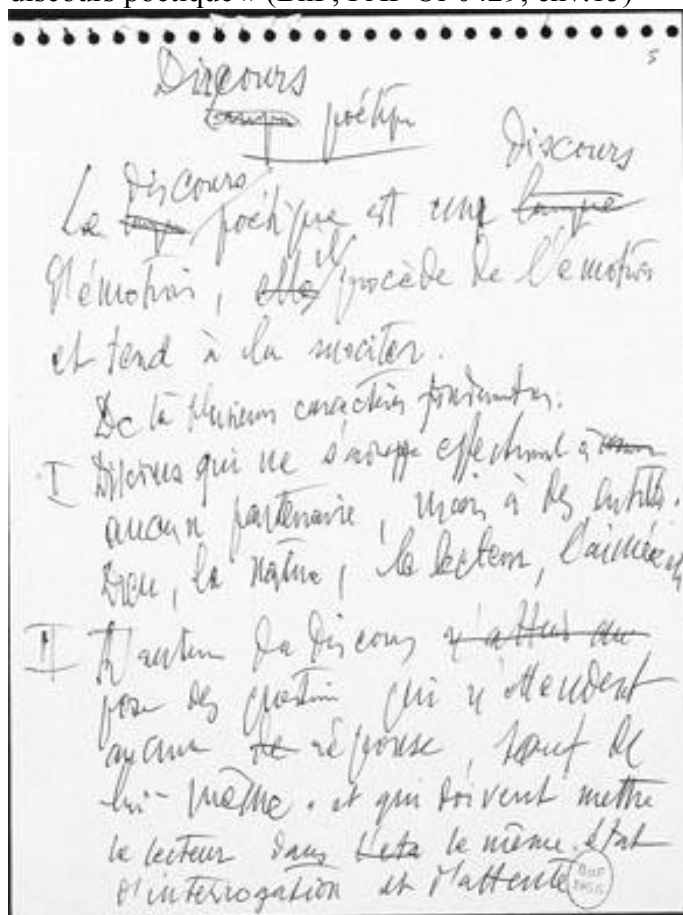 discours poétique » (BnF, PAP OR 0429, env.13)
5
Discours
poétique
Discours
Discours
Le langue poétique est une langue
d'émotion, elle il procède de l'émotion
et tend à la susciter.
De là plusieurs caractères fondamentaux.
I Discours qui ne s'adresse effectivement à
aucun partenaire, mais à des entités.
Dieu, la nature, le lecteur, l'aimée
II L'auteur du discours n'attend
pose des questions qui n'attendent
aucune de réponse, sauf de
lui-même. et qui doivent mettre
le lecteur dans le même état
d'interrogation et d'attente
BnF
MSS